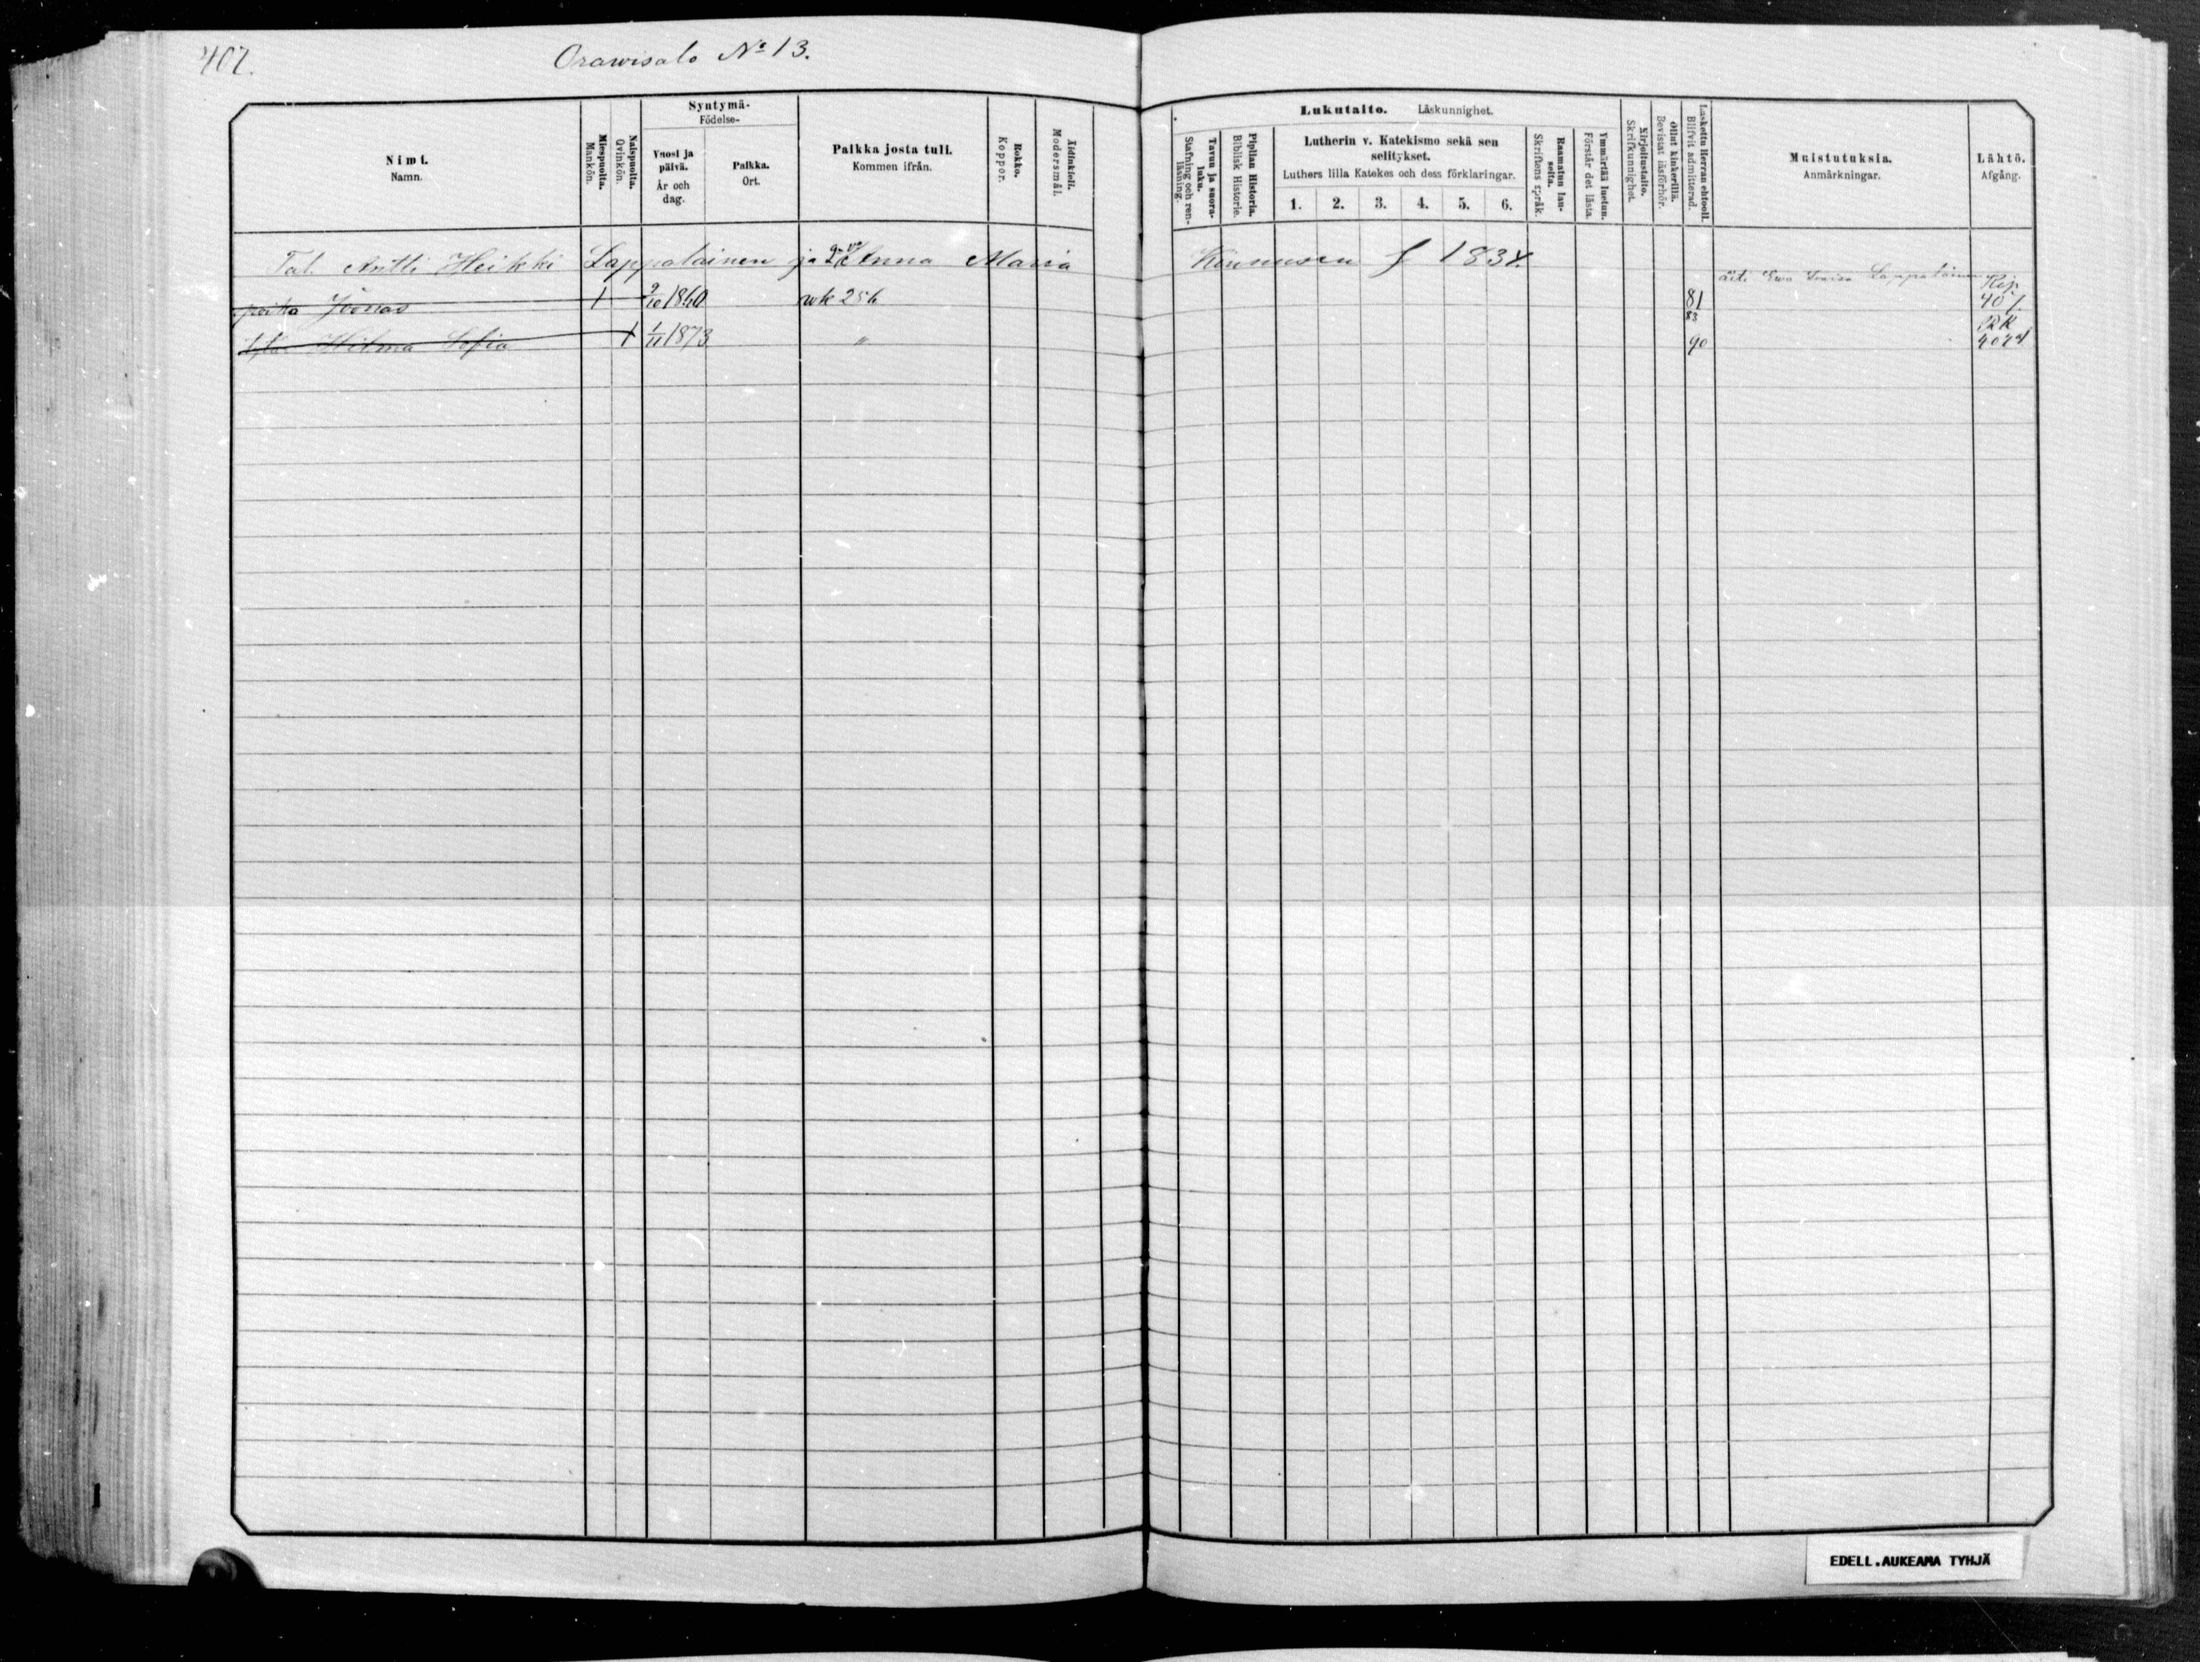 407.
Orawisalo No 13.
Nimi.
Namn.
Miespuolta.
Mankön.
Naispuolta.
Qvinkön.
Syntymä-
Födelse-
Vuosi ja
päivä.
År och
dag.
Paikka.
Ort.
Paikka josta tuli.
Kommen ifrån.
Rokko.
Koppor.
Äidinkieli.
Modersmål.
Lukutaito. Läskunnighet.
Tavuu ja suora-
luku.
Stafning och ren-
läsning.
Piplian Historia.
Biblisk Historie.
Lutherin v. Katekismo sekä sen
selitykset.
Luthers lilla Katekes och dess förklaringar.
1. 2. 3. 4. 5. 6.
Raamatun lau-
seita.
Skriftens språk.
Ymmärtää luetun.
Förstår det lästa.
Kirjoitustaito.
Skrifkunnighet.
Ollut kinkerillä.
Bevistat läsförhör.
Laskettu Herran ehtooll.
Blifvit admitterad.
Muistutuksia.
Anmärkningar.
Lähtö.
Afgång.
Tal. Antti Heikki Lappalainen ja Anna Maria f 1834.
äiti Ewa Lovisa Lappalainen
poika Joonas 1 9/10 1860 wk 256 81 Rip.
83
Hilma Sofia 1 1/11 1873 " 90 RK
EDELL.AUKEAMA TYHJÄ